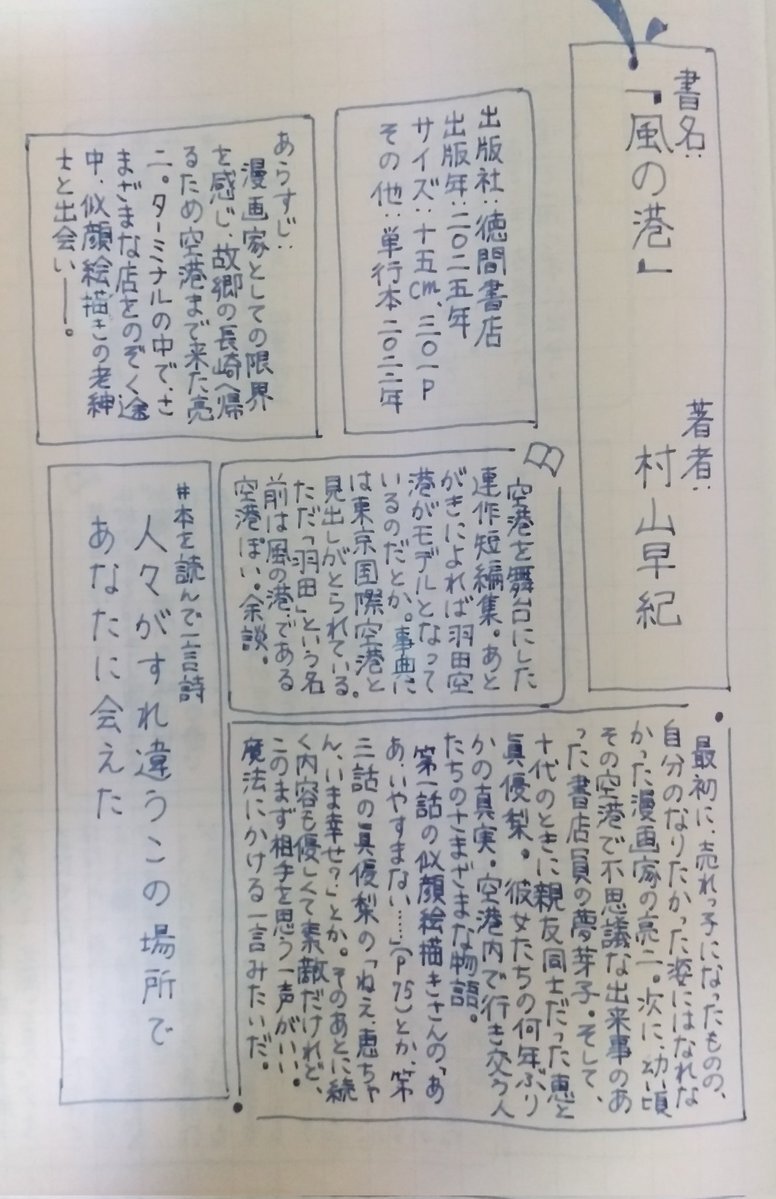 書名：
「風の港」
著者：
村山早紀
出版社：徳間書店
出版年：二〇二五年
サイズ：十五cm、三〇一P
その他：単行本二〇二二年
あらすじ：
漫画家としての限界
を感じ、故郷の長崎へ帰
るため空港まで来た亮
二。ターミナルの中で、さ
まざまな店をのぞく途
中、似顔絵描きの老紳
士と出会い――。
空港を舞台にした
連作短編集。あと
がきによれば羽田空
港がモデルとなって
いるのだとか。事典に
は東京国際空港と
見出しがとられている。
ただ「羽田」という名
前は風の港である
空港ぽい。余談。
最初に、売れっ子になったものの、
自分のなりたかった姿にはなれな
かった漫画家の亮二。次に、幼い頃
その空港で不思議な出来事のあ
った書店員の夢芽子。そして、
十代のときに親友同士だった恵と
眞優梨。彼女たちの何年ぶり
かの真実・空港内で行き交う人
たちのさまざまな物語。
第一話の似顔絵描きさんの「あ
あ、いやすまない……」(P75)とか、第
三話の眞優梨の「ねえ、恵ちゃ
ん、いま幸せ？」とか。そのあとに続
く内容も優しくて素敵だけれど、
このまず相手を思う一声がいい。
魔法にかける一言みたいだ。
#本を読んで一言詩
人々がすれ違うこの場所で
あなたに会えた